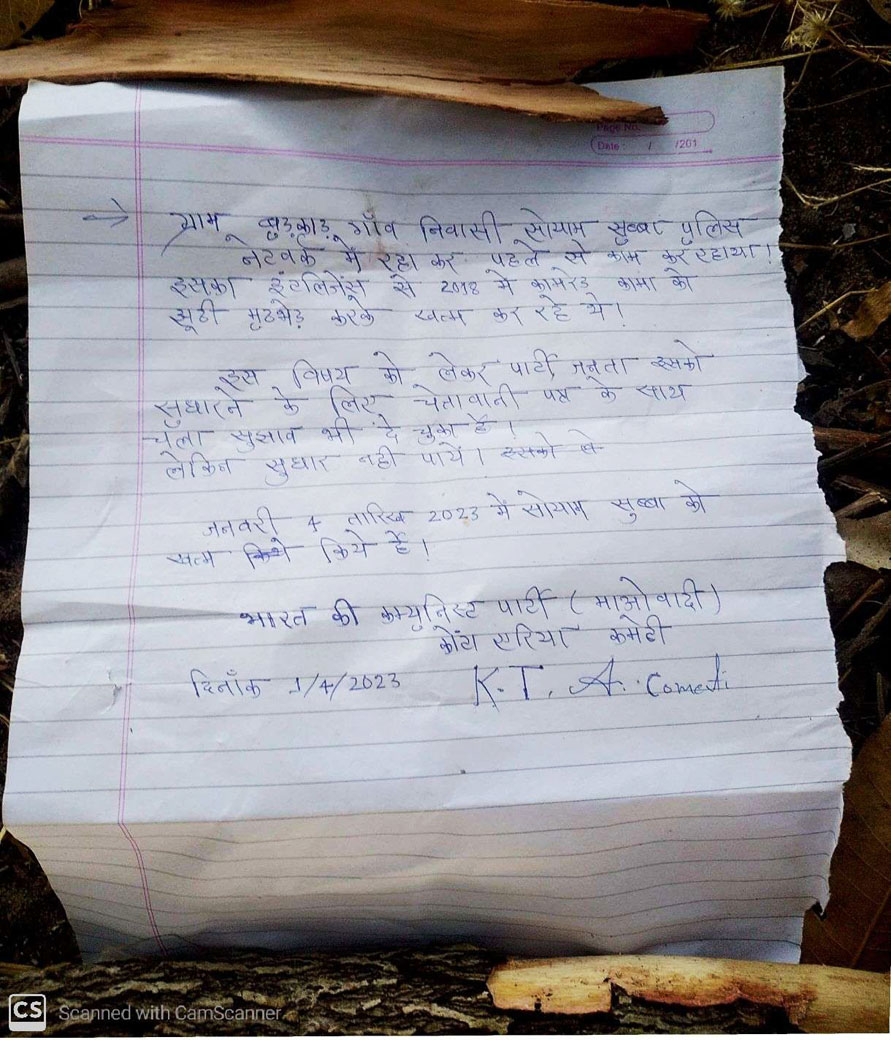 Page No.
Date : / /201
→ ग्राम बुड़काड़ गाँव निवासी सोयाम सुब्बा पुलिस
नेटवर्क में रहा कर पहले से काम कर रहाथा।
इसका इंटलिजेंस से 2018 में कामरेड़ कामा को
झूटी मुटभेड़ करके खत्म कर रहे थे।
इस विषय को लेकर पार्टी, जनता इसको
सुधारने के लिए चेतावानी पत्र के साथ
चेला सुझाव भी दे चुका है।
लेकिन सुधार नही पाये। इसको
जनवरी 4 तारिख 2023 में सोयाम सुब्बा को
खत्म किये किये हैं।
भारत की कम्युनिस्ट पार्टी (माओवादी)
कोंटा एरिया कमेटी
दिनाँक 1/4/2023 K.T. A. Cometi
CS Scanned with CamScanner